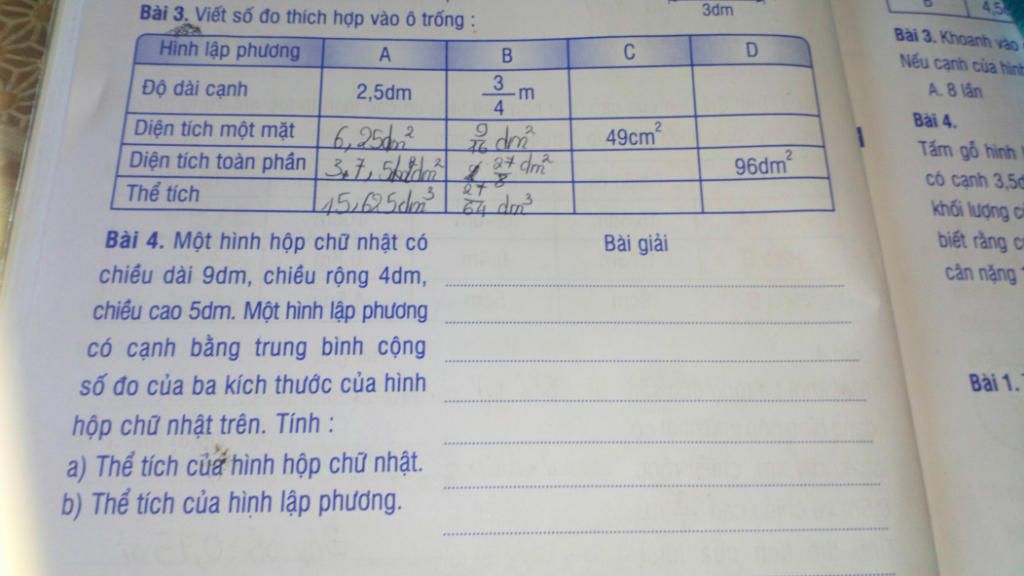 Bài 3. Viết số đo thích hợp vào ô trống :
3dm
Hình lập phương A B C D
Độ dài cạnh 2,5dm 3/4 m
Diện tích một mặt 6,25dm² 9/16 dm² 49cm²
Diện tích toàn phần 27/8 dm² 96dm²
Thể tích 15,625dm³ 27/64 dm³
Bài 4. Một hình hộp chữ nhật có
chiều dài 9dm, chiều rộng 4dm,
chiều cao 5dm. Một hình lập phương
có cạnh bằng trung bình cộng
số đo của ba kích thước của hình
hộp chữ nhật trên. Tính :
a) Thể tích của hình hộp chữ nhật.
b) Thể tích của hình lập phương.
Bài giải
B 4,5
Bài 3. Khoanh vào
Nếu cạnh của hình
A. 8 lần
Bài 4.
Tấm gỗ hình
có cạnh 3,5
khối lượng
biết rằng
cân nặng
Bài 1.